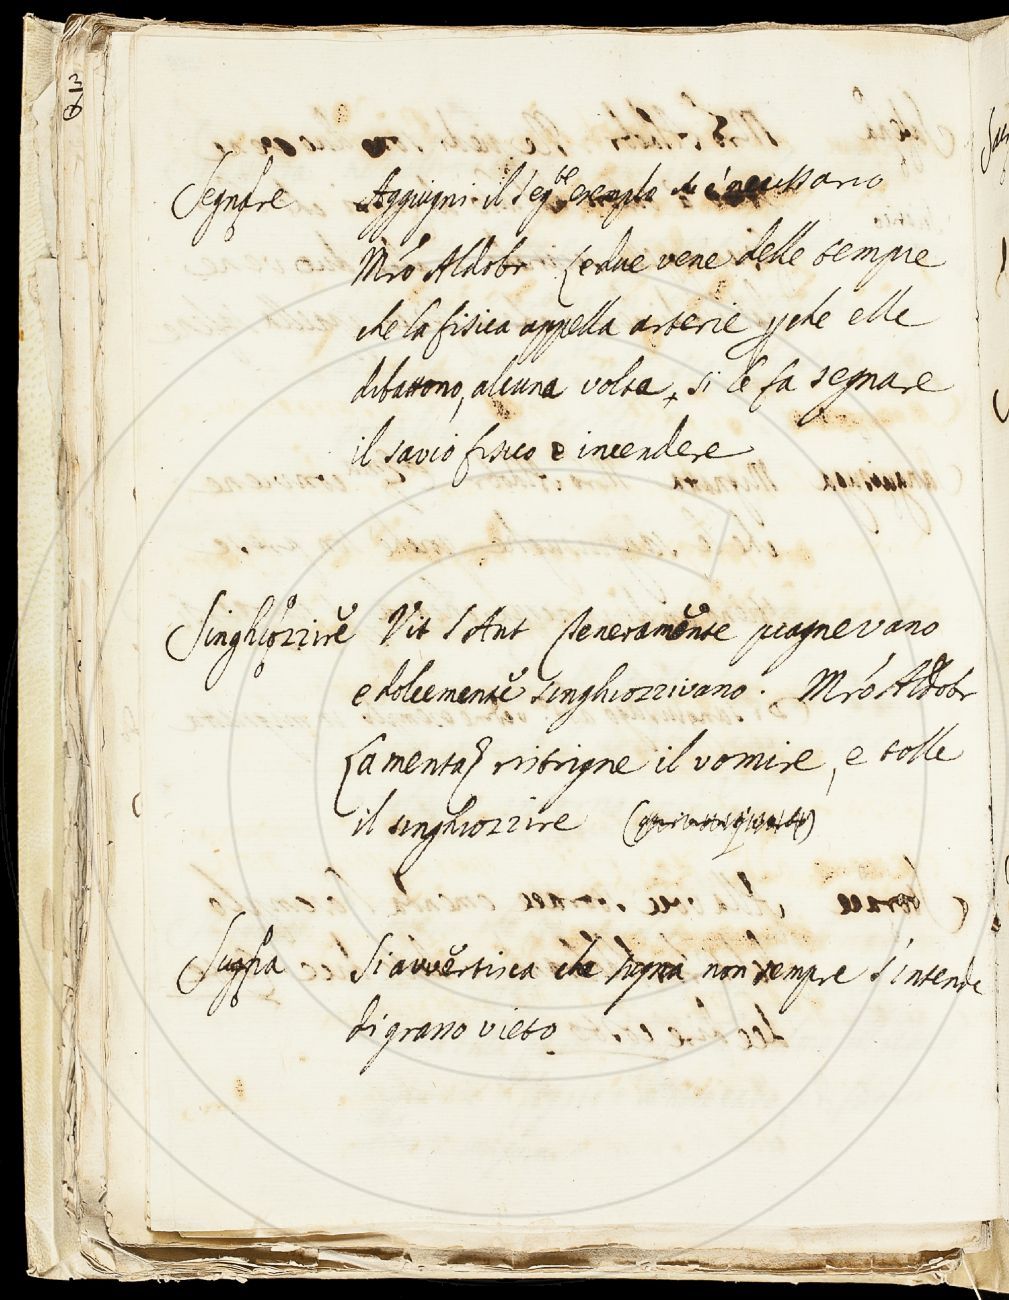 Segnare Aggiugni il seg.te exemplo che è necessario
Mró Aldobr Le due vene delle tempie
che la fisica appella arterie pche elle
dibattono, alcuna volta, si le fa segnare
il savio fisico e incendere
Singhiozzire Vit S Ant Teneramẽnte piagnevano
e dolcemente singhiozzivano. Mró Aldobr
(La menta) ristrigne il vomire, e tolle
il singhiozzire
Sugna Si avvertisca che sugna non sempre s'intende
di grasso vieto